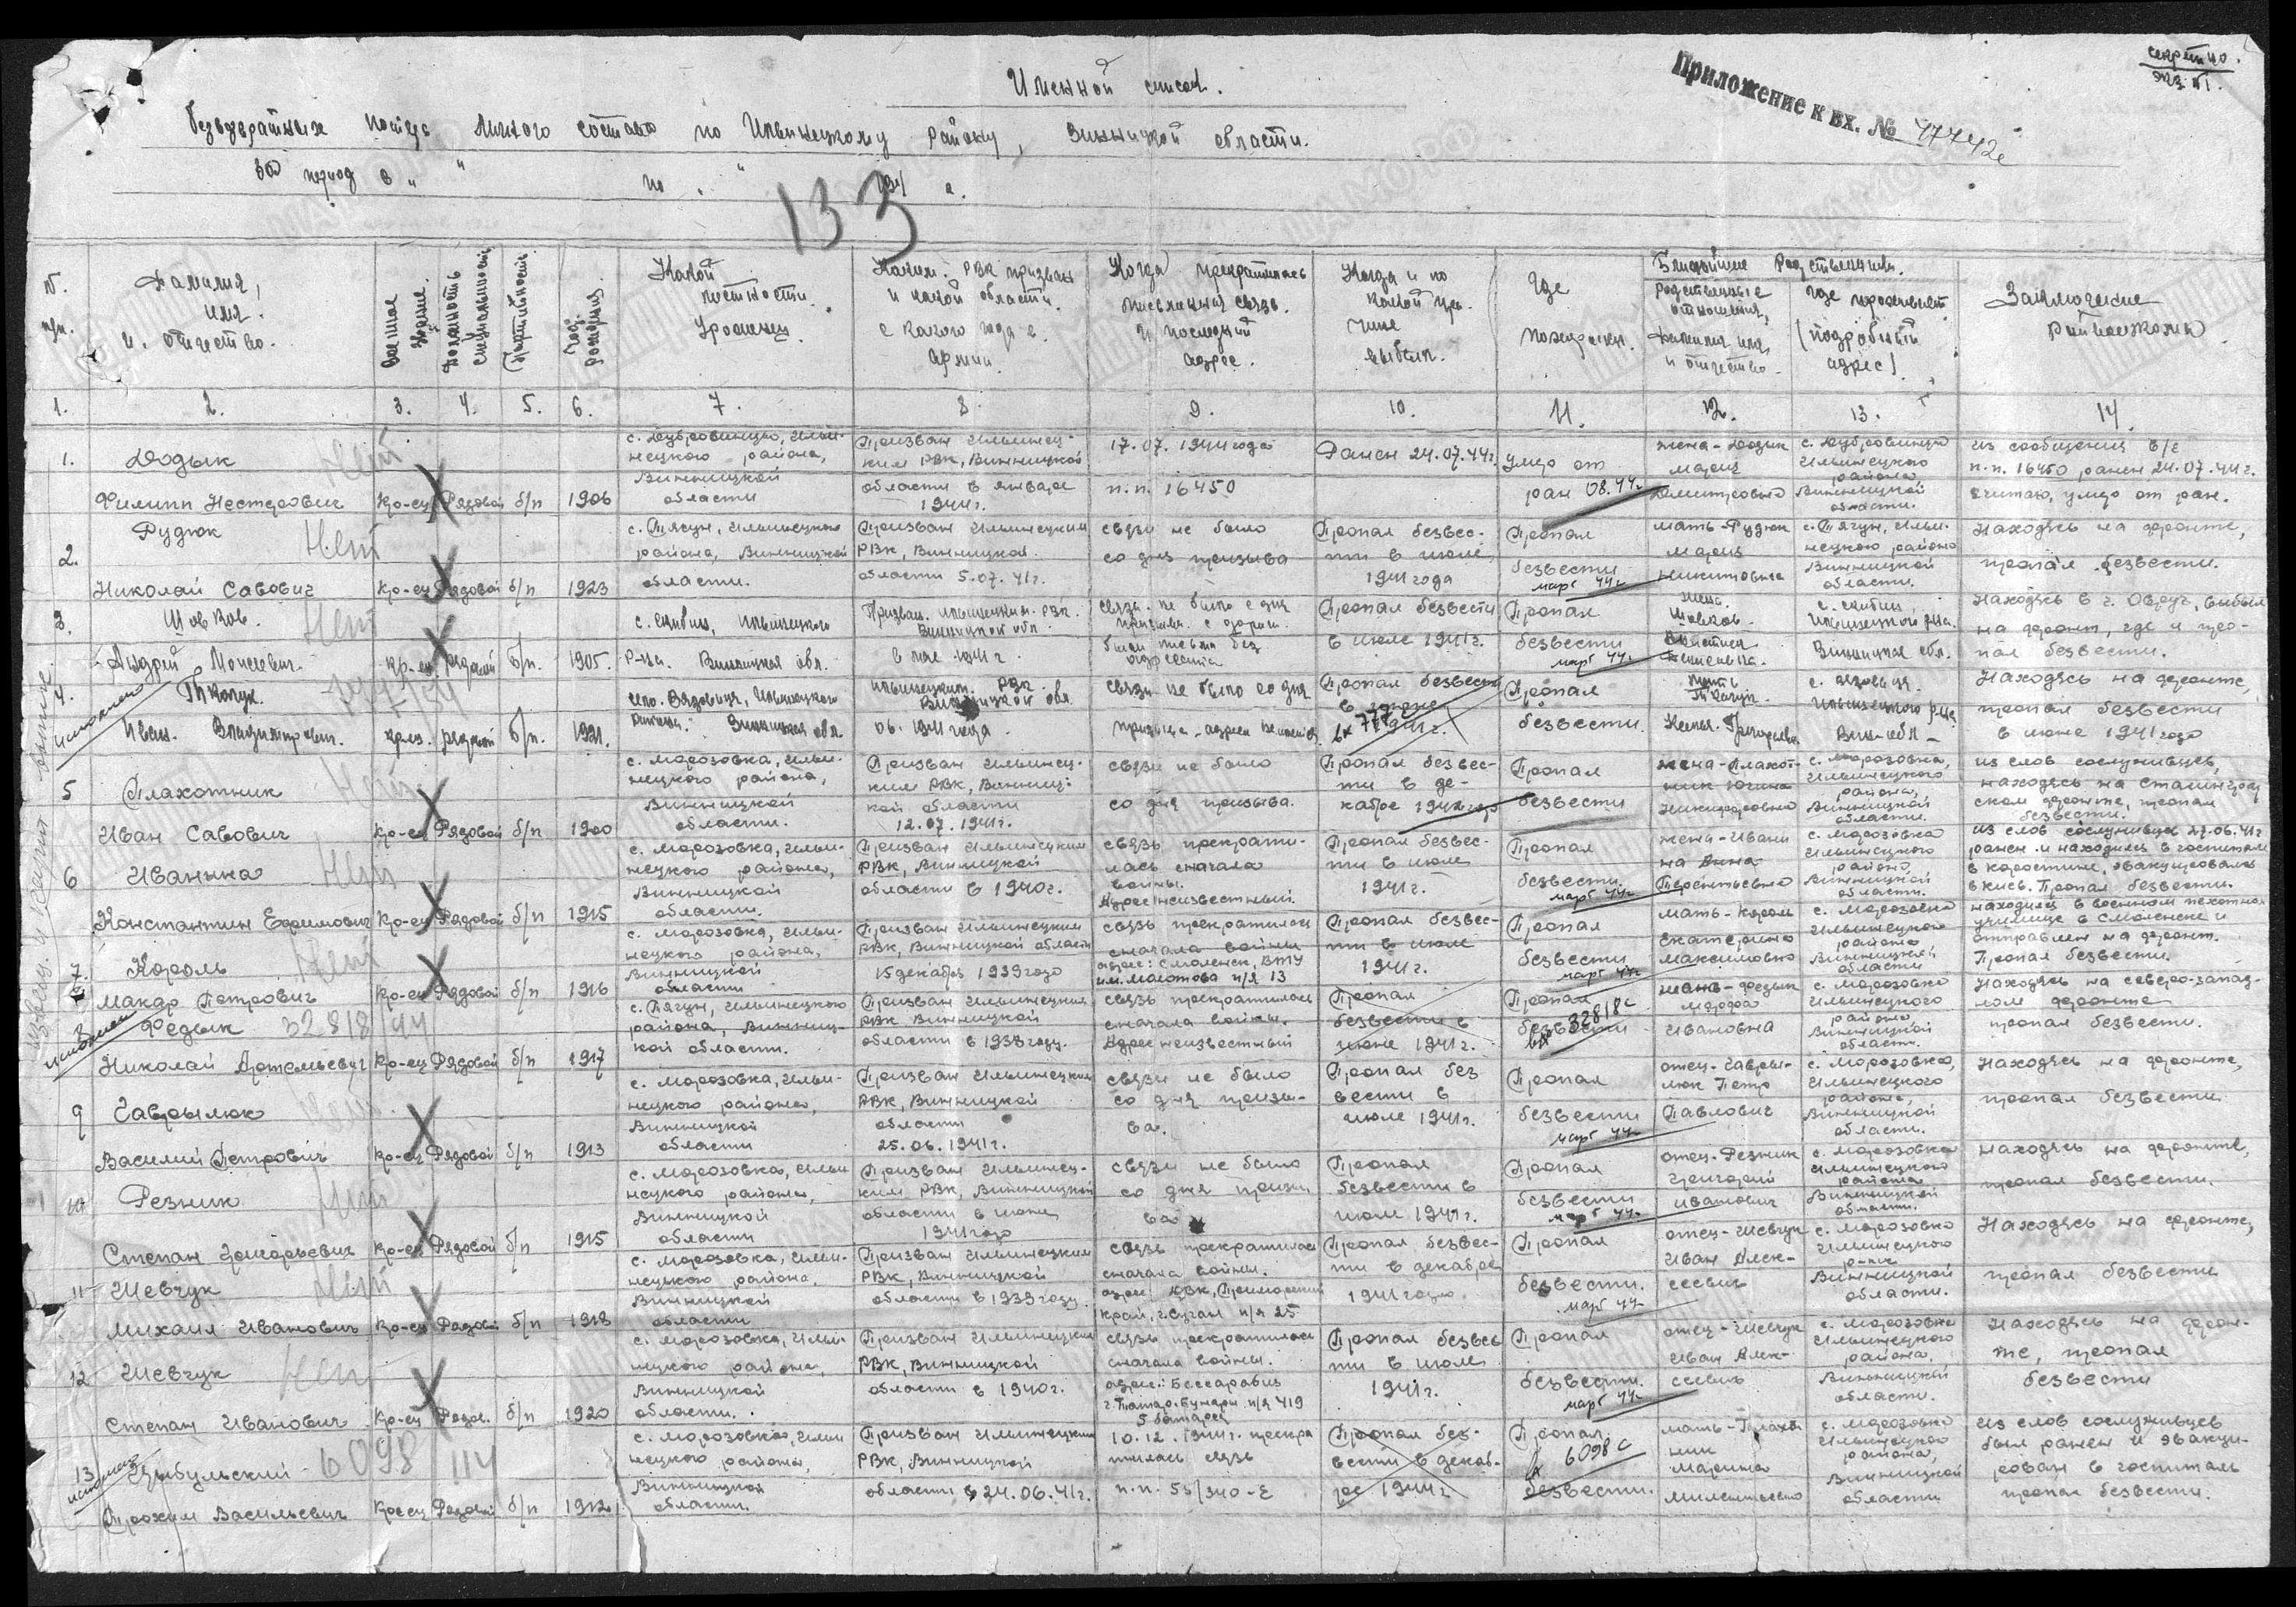 секретно.
экз. №1.
Приложение к вх. № 47742с
Именной список.
безвозвратных потерь личного состава по Ильинецкому району, Винницкой области.
за период с " " по " " 194 г.
133
№ п/п.
Фамилия, имя. и. отчество.
Военное звание.
Должность специальность
Партийность
Год рождения
Какой местности уроженец.
Каким. РВК призван и какой области. с какого года в армии.
Когда прекратилась письменная связь. и последний адрес.
Когда и по какой при- чине выбыл.
Где похоронен.
Ближайшие Родственники.
родственные отношения, Фамилия имя, и отчество.
где проживает (подробный адрес)
Заключение райвоенкома
1. 2. 3. 4. 5. 6. 7. 8. 9. 10. 11. 12. 13. 14.
1. Додык Филипп Нестерович
Нет
кр-ец Рядовой б/п 1906
с. Дубровинцы, Ильи- нецкого района, Винницкой области
Призван Ильинец- ким РВК, Винницкой области в январе 1944г.
17.07.1944 года п.п. 16450
Ранен 24.07.44г.
умер от ран 08.44г
жена-Додык Мария Дмитровна
с. Дубровинцы Ильинецкого района Винницкой области.
из сообщения в/ч п.п. 16450 ранен 24.07.44г. считаю, умер от ран.
2. Рудюк Николай Савович
Нет
кр-ец Рядовой б/п 1923
с. Тягун, Ильинецкого района, Винницкой области.
Призван Ильинецким РВК, Винницкой области 5.07.41г.
связи не было со дня призыва
Пропал безвес- ти в июле 1941 года
Пропал безвести март 44г
мать-Рудюк Мария Никитовна
с. Тягун, Ильи- нецкого района Винницкой области.
Находясь на фронте, пропал безвести.
3. Шовков. Андрей Моисеевич
Нет
кр-ец рядовой б/п. 1905.
с. Скибин, Ильинецкого р-на. Винницкая обл.
Призван. Ильинецким. РВК. Винницкой обл. в мае 1941 г.
связи не было с дня призыва. с дороги. были письма без адреса
Пропал безвести в июле 1941г.
Пропал безвести март 44г
жена. Шовков.
с. Скибин, Ильинецкой р-на. Винницкая обл.
Находясь в г. Овруч, выбыл на фронт, где и про- пал безвести.
4. Ткачук. Иван. Владимирович.
исполнено
кр-ец. рядовой б/п. 1921.
село. Вядовиця, Ильинецкого района. Винницкая обл.
Ильинецким. РВК. Винницкой обл. 06.1941 года.
связи не было со дня призыва
Пропал безвести в июне 1941г.
Пропал безвести.
мать Ткачук.
Ильинецкого р-на Вин-обл-
Находясь на фронте, пропал безвести в июне 1941 года
5 Плахотник Иван Савович
Нет
кр-ец Рядовой б/п 1900
с. Морозовка, Ильи- нецкого района, Винницкой области.
Призван Ильинец- ким РВК, Винниц- кой области 12.07.1941г.
связи не было со дня призыва.
Пропал безвес- ти в де- кабре 1942 года
Пропал безвести
жена-Плахот- ник Югина Никифоровна
с. Морозовка, Ильинецкого района, Винницкой области.
из слов сослуживцев, находясь на Сталинград ском фронте, пропал безвести.
6 Иваньна Константин Ефимович
Нет
кр-ец Рядовой б/п 1915
с. Морозовка, Ильи- нецкого района, Винницкой области.
Призван Ильинецким РВК, Винницкой области в 1940г.
связь прекрати- лась сначала войны. Адрес неизвестный.
Пропал безвес- ти в июле 1941г.
Пропал безвести март 44г
жена-Ивань на Анна Терентьевна
с. Морозовка Ильинецкого района, Винницкой области.
из слов сослуживцев 27.06.41г ранен и находился в госпитале в Коростине, эвакуировался в Киев. Пропал безвести.
7. Король Макар Петрович
Нет
кр-ец Рядовой б/п 1916
с. Морозовка, Ильи- нецкого района, Винницкой области
Призван Ильинецким РВК, Винницкой области 15 декабря 1939 года
связь прекратилась сначала войны адрес: Смоленск, ВПУ им. Молотова п/я 13
Пропал безвес- ти в июле 1941г.
Пропал безвести март 44г
мать-Король Екатерина Максимовна
с. Морозовка Ильинецкого района Винницкой области
находился в военном пехотном училище в Смоленске и отправлен на фронт. Пропал безвести.
Федык Николай Артемьевич
32818/44
исполнено
кр-ец Рядовой б/п 1917
с. Тягун, Ильинецкого района, Винниц- кой области.
Призван Ильинецким РВК Винницкой области в 1938 году.
связь прекратилась сначала войны. Адрес неизвестный
Пропал безвести в июне 1941г.
Пропал безвести вх 32818с
Федык Марфа Ивановна
с. Морозовка Ильинецкого района Винницкой области.
Находясь на северо-запад- ном фронте пропал безвести.
9 Гаврылюк Василий Петрович
Нет
кр-ец Рядовой б/п 1913
с. Морозовка, Ильи- нецкого района, Винницкой области
Призван Ильинецким РВК, Винницкой области 25.06.1941г.
связи не было со дня призы- ва.
Пропал без вести в июле 1941г.
Пропал безвести март 44г
отец-Гаври- люк Петр Павлович
с. Морозовка, Ильинецкого района, Винницкой области.
Находясь на фронте, пропал безвести
10 Резник Степан Григорьевич
Нет
кр-ец Рядовой б/п 1915
с. Морозовка, Ильи нецкого района, Винницкой области
Призван Ильинец- ким РВК, Винницкой области в июне 1941 года
связи не было со дня призы ва
Пропал безвести в июле 1941г.
Пропал безвести март 44г
отец-Резник Григорий Иванович
с. Морозовка Ильинецкого района Винницкой области.
находясь на фронте, пропал безвести.
11 Шевчук Михаил Иванович
Нет
кр-ец Рядовой б/п 1918
с. Морозовка, Ильи- нецкого района, Винницкой области
Призван Ильинецким РВК, Винницкой области в 1939 году.
связь прекратилась сначала войны. адрес: ДВК, Приморский край, г. Сучан п/я 25
Пропал безвес- ти в декабре 1941 года.
Пропал безвести. март 44г
отец-Шевчук Иван Алек- сеевич
с. Морозовка Ильинецкого р-на Винницкой области.
Находясь на фронте, пропал безвести
12 Шевчук Степан Иванович
Нет
кр-ец Рядов. б/п 1920
с. Морозовка, Ильи- нецкого района, Винницкой области.
Призван Ильинецким РВК, Винницкой области в 1940г.
связь прекратилась сначала войны. адрес: Бессарабия г. Татар-Бунары п/я 419 5 батарея
Пропал безвес ти в июле 1941г.
Пропал безвести. март 44г
отец-Шевчук Иван Алек- сеевич
с. Морозовка Ильинецкого района, Винницкой области.
Находясь на фрон- те, пропал безвести
13 Цыбульский Трохим Васильевич
6098/114
исполнено
кр-ец Рядовой б/п 1912
с. Морозовка, Ильи нецкого района, Винницкой области.
Призван Ильинецким РВК, Винницкой области в 24.06.41г.
10.12.1944г. прекра тилась связь п.п. 55/340-Е
Пропал без- вести в декаб- ре 1944г
Пропал безвести. вх 6098с
мать-Плахот ник Марина
с. Морозовка Ильинецкого района, Винницкой области
из слов сослуживцев был ранен и эвакуи- рован в госпиталь пропал безвести.